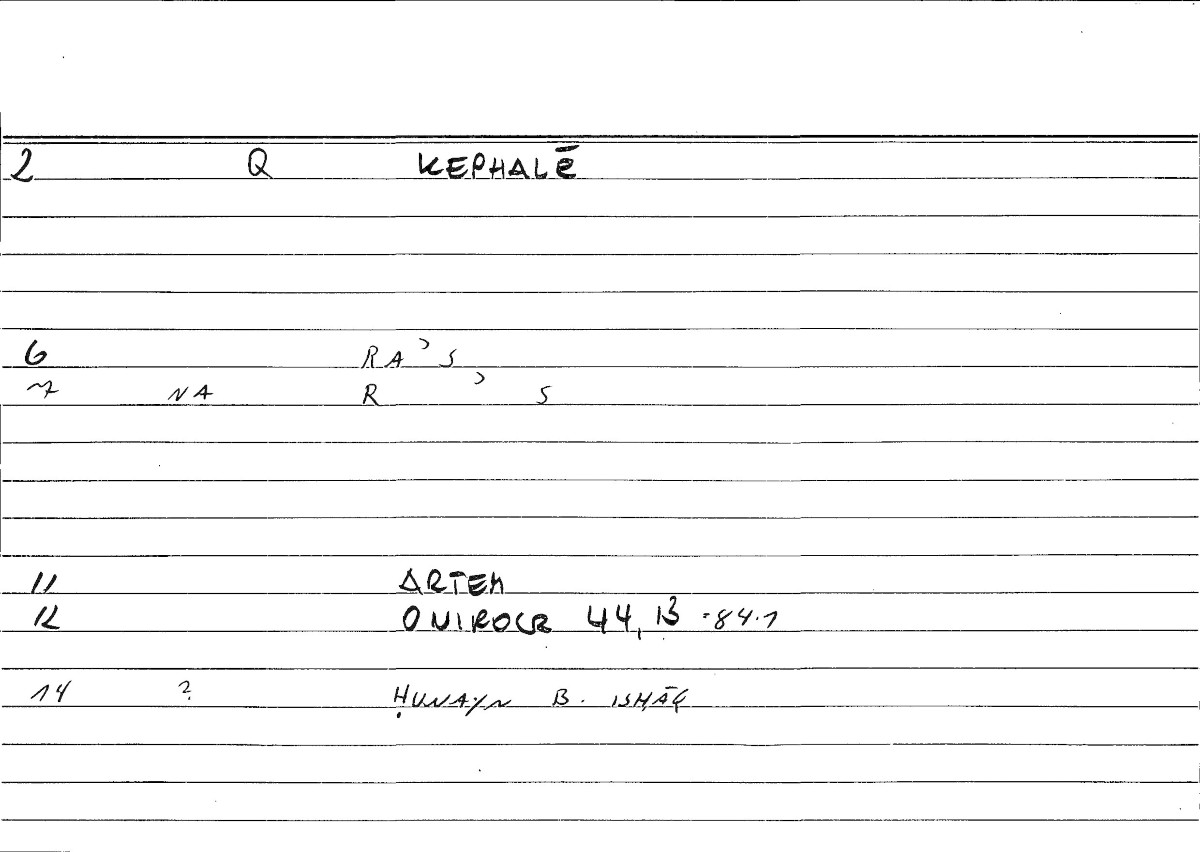 2 Q KEPHALē
6 RA’S
7 NA R ’ S
11 ARTEM
12 ONIROCR 44, 13 -84.1
14 ? ḤUNAYN B. ISḤĀQ